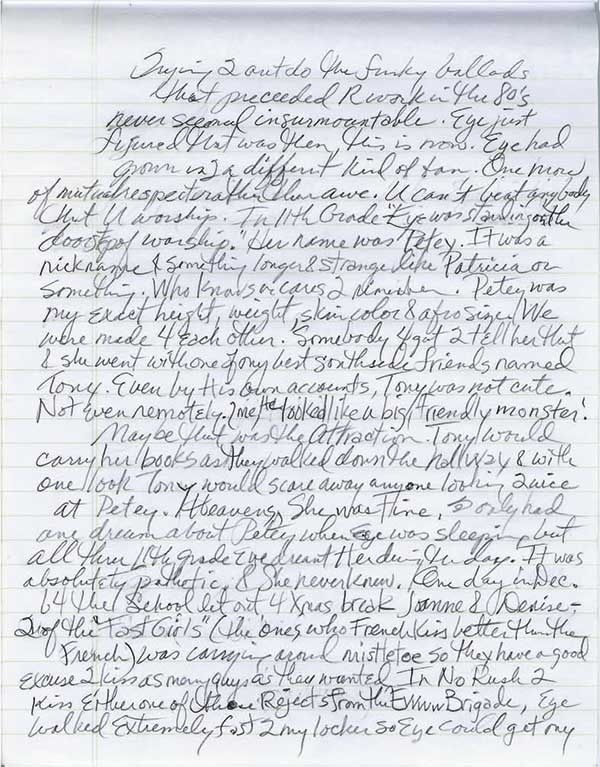 Trying 2 outdo the funky ballads
that preceeded R work in the 80's
never seemed insurmountable. Eye just
figured that was then, this is now. Eye had
grown in2 a different kind of fan. One more
of mutual respect rather than awe. U can't beat anybody
that U worship. In 11th Grade "Eye was standing on the
doorstep of worship." Her name was Petey. It was a
nickname 4 something longer & strange like Patricia or
something. Who knows or cares 2 remember. Petey was
my exact height, weight, skin color & afro size. We
were made 4 each other. Somebody 4got 2 tell her that
& she went with one of my best southside friends named
Tony. Even by His own accounts, Tony was not cute.
Not Even remotely. 2 me, He looked like a big friendly monster!
Maybe that was the attraction. Tony would
carry her books as they walked down the hallway & with
one look Tony would scare away anyone looking 2wice
at Petey. Heavens, She was Fine. only had
one dream about Petey when Eye was sleeping but
all thru 10th grade Eye dreamt Her during the day. It was
absolutely pathetic, & She never knew. One day in Dec.
the School let out 4 Xmas break Joanne & Denise -
2 of the "Fast Girls" (the ones who French Kiss better than the
French) was carrying around mistletoe so they have a good
excuse 2 kiss as many guys as they wanted In No Rush 2
Kiss Either one of these Rejects from the Brigade, Eye
walked Extremely fast 2 my locker so Eye could get my